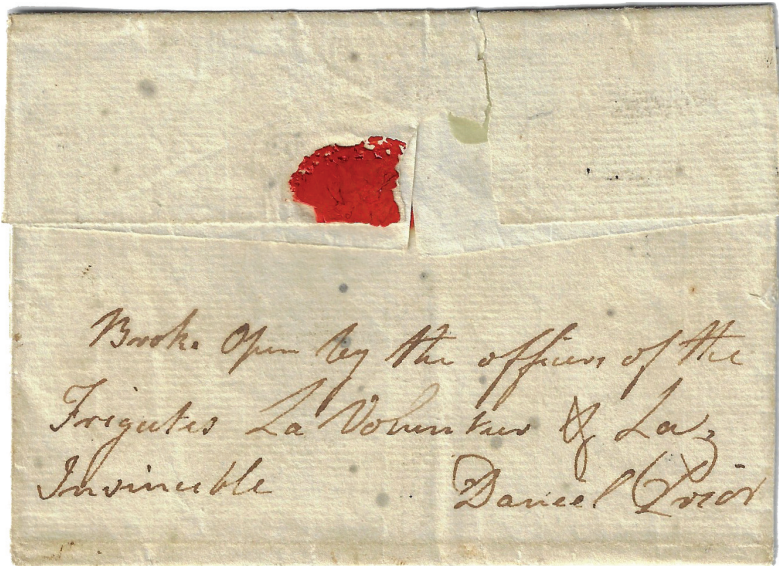 Broke Open by the officers of the
Frigates La Volunteer & La
Invincible Daniel Prior